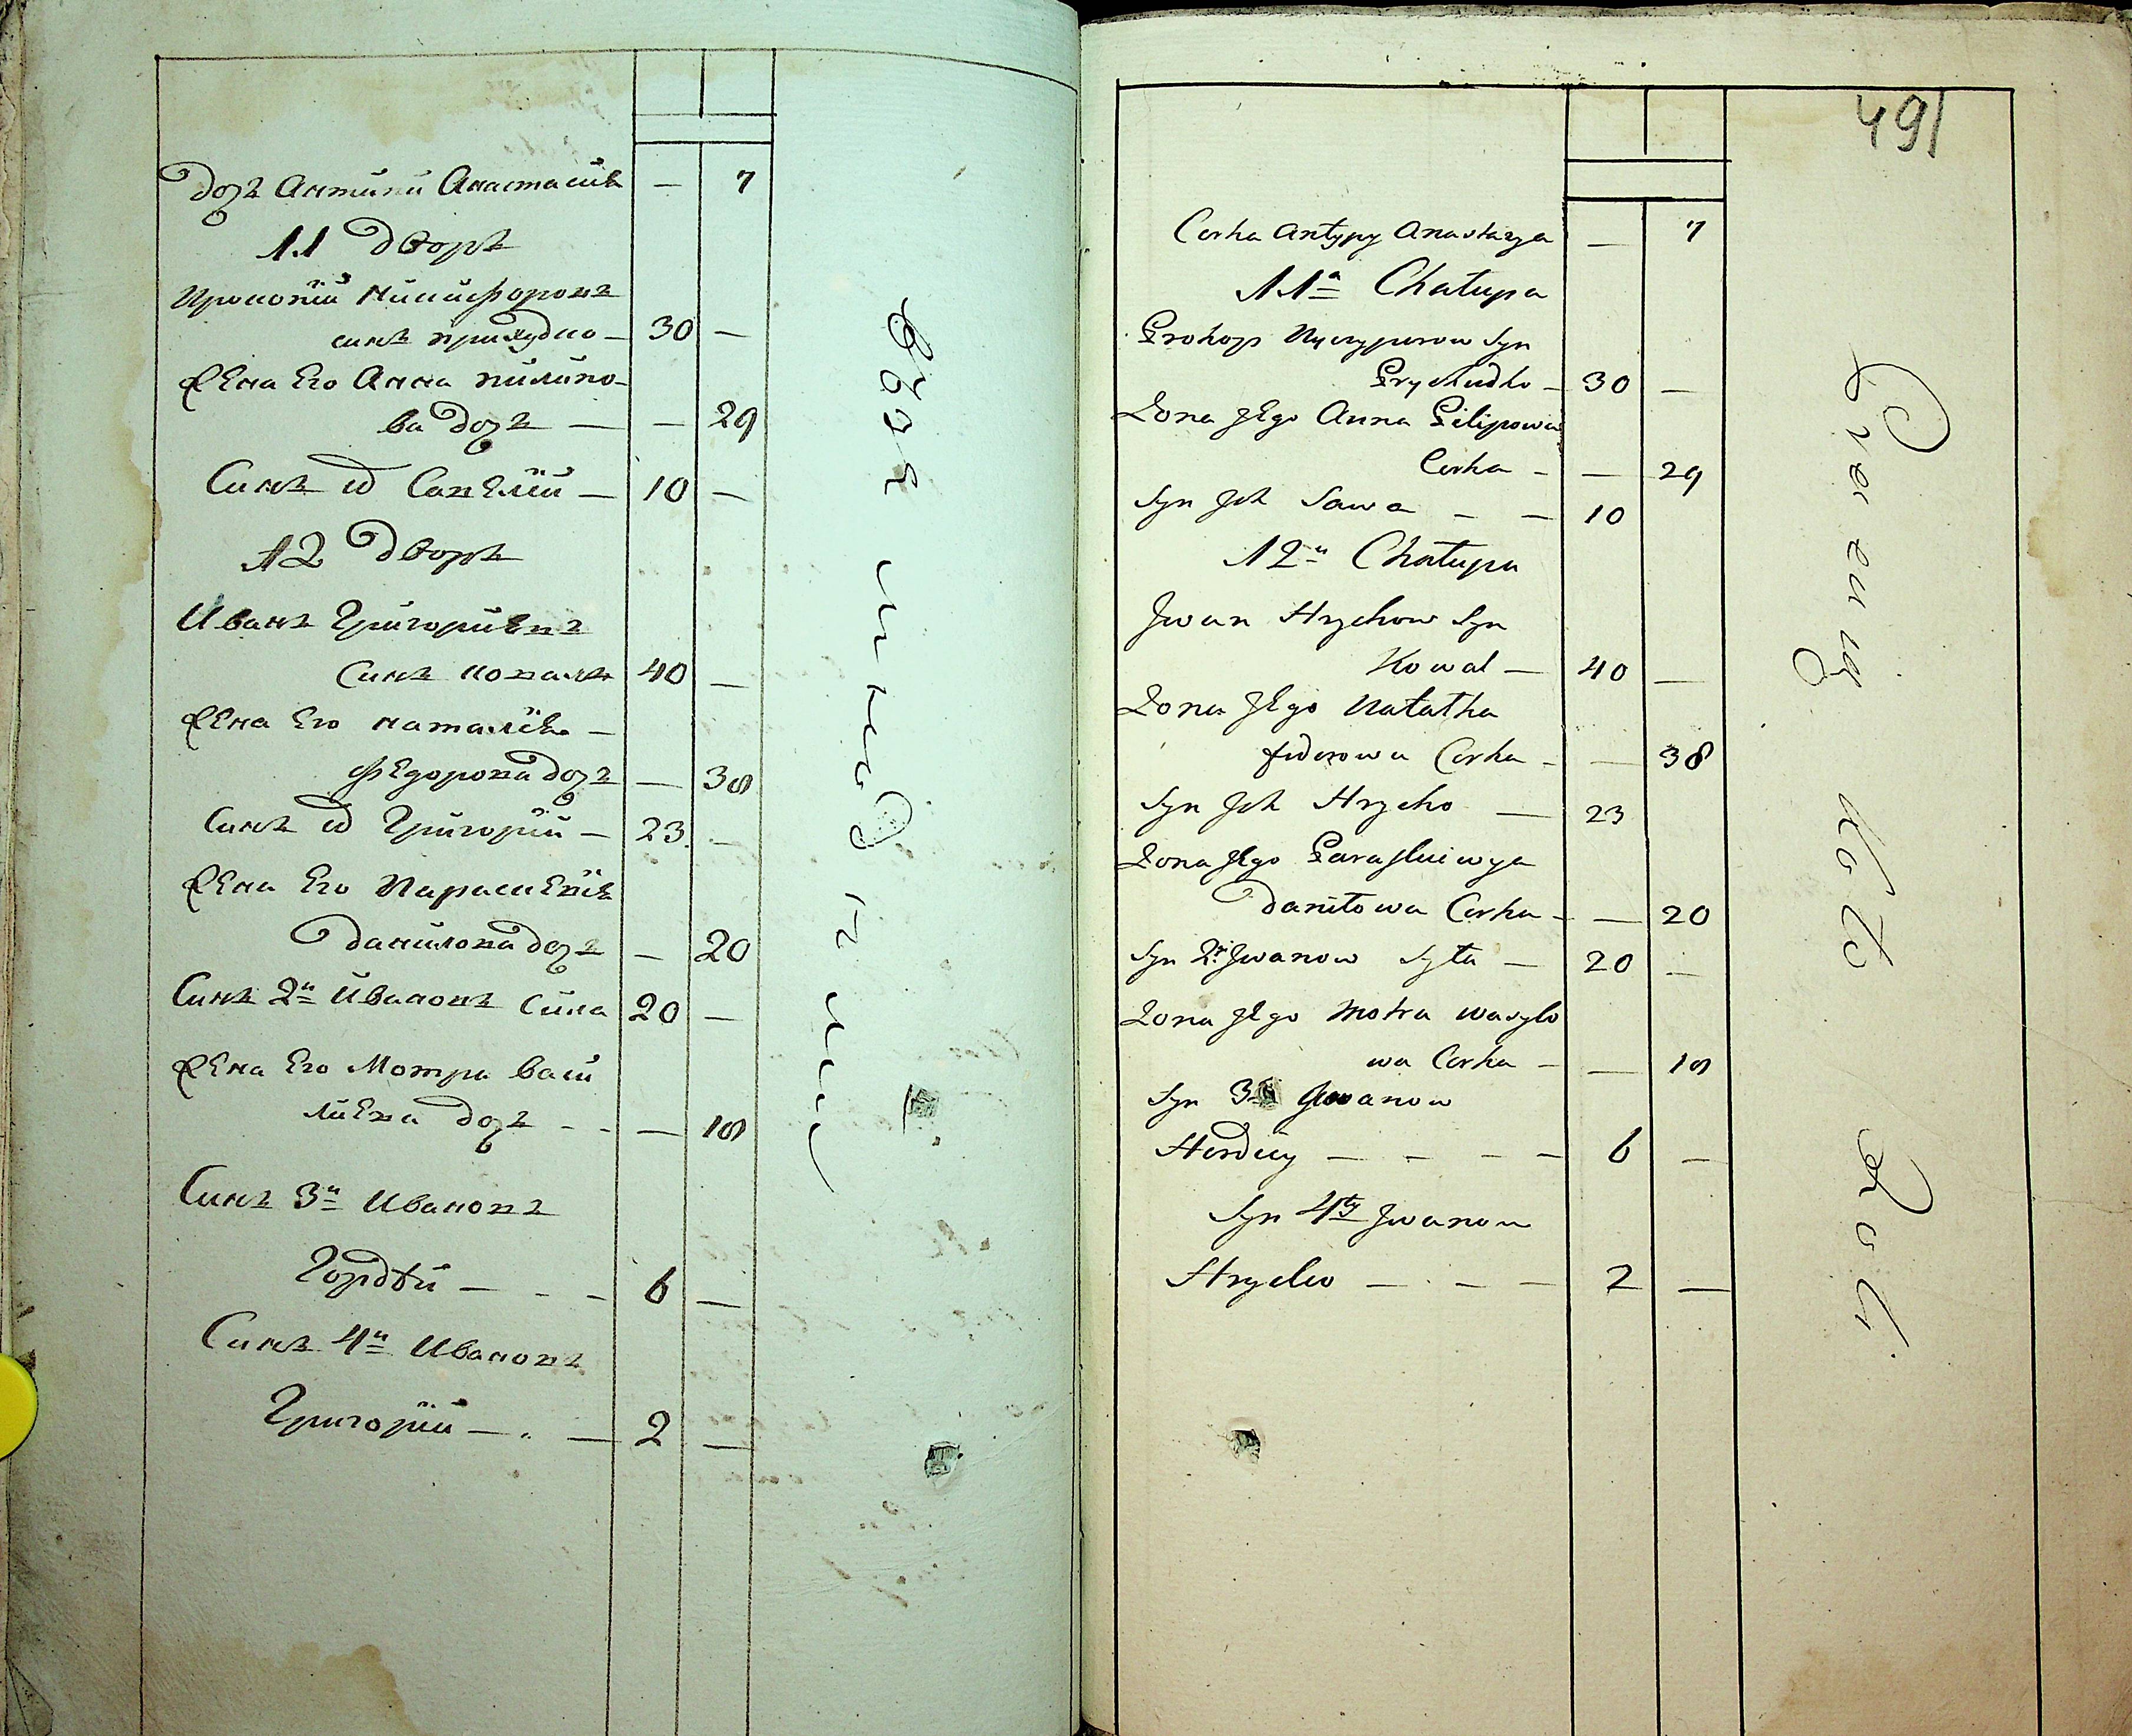 дочь Антипи Анастасия — 7
11 дворъ
Прокопий Ничипоровъ
синъ прихудко — 30 —
жена Его Анна пилипо-
ва дочь — — 29
Синъ их Савелий — 10 —
12 дворъ
Иванъ Григориевъ
Синъ коваль 40 —
жена Его наталия —
федорова дочь — 38
Синъ их Григорий — 23 —
жена Его Параскевия
данилова дочь — 20
Синъ 2й Ивановъ Сила 20 —
жена Его Мотря васи
лиева дочь - - — 18
Синъ 3й Ивановъ
Гордѣй — - - 6 —
Синъ 4й Ивановъ
Григорий — . — 2 —
491
Corka Antypy Anastazya — 7
11a Chałupa
Prokop Nyczyporow Syn
Prychudko — 30 —
Zona Jego Anna Pilipowa
Corka - — 29
Syn Jch Sawa - — 10
12a Chałupa
Jwan Hrychow Syn
Kowal — 40 —
Zona Jego Natałka
fedorowa Corka - — 38
Syn Jch Hrycko — 23
Zona Jego Paraskiewya
daniłowa Corka - — 20
Syn 2i Jwanow Syła — 20 —
Zona Jego Motra Wasylo
wa Corka - — 18
Syn 3i Jwanow
Hordiey — - - — 6 —
Syn 4ty Jwanow
Hrycko — - - — 2 —